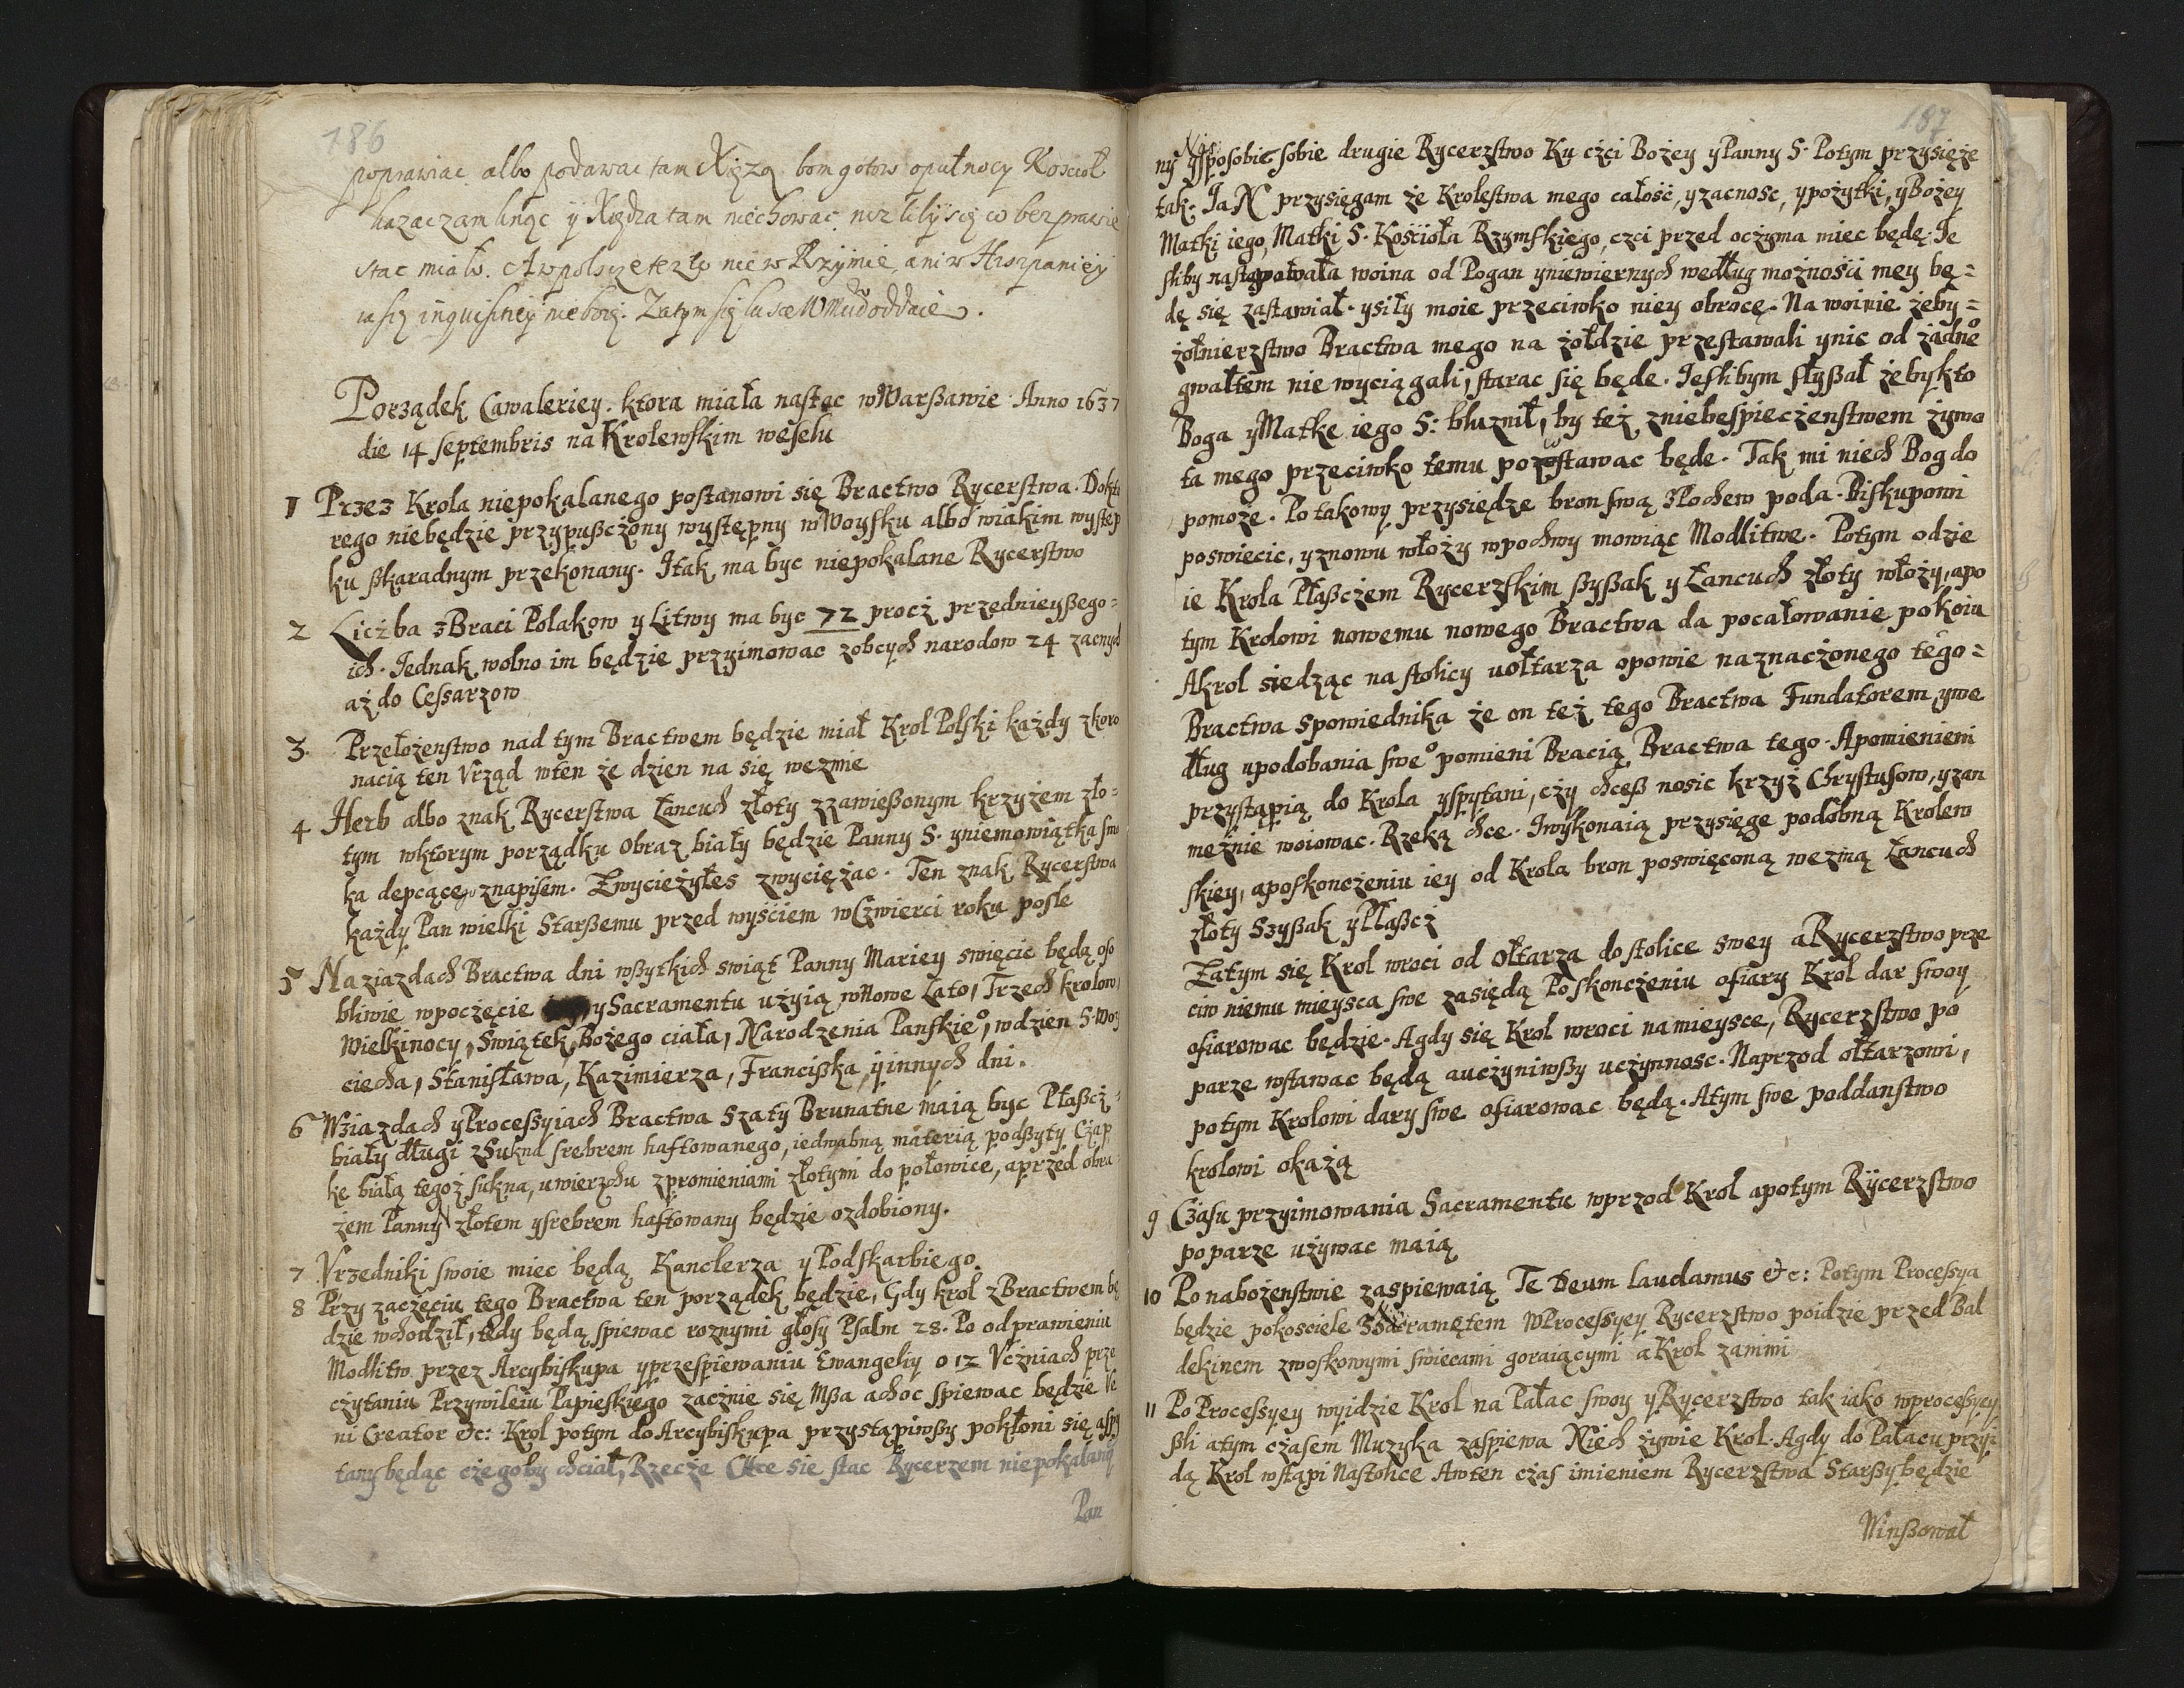 186
poprawiac albo podawac tam Xięza. bom gotow opułnocy Kosciół
kazac zamknąc ÿ Xiędza tam niechowac, niz liby się co bezprawie
stac miało. Awpolszcze tezto nie w Rzÿmie, ani w Hiszpaniey
ia się inquisitiey nie boię. Zatym się łasce WMci oddaię.
Porządek Cawaleriey. ktora miała nastąc wWarßawie Anno 1637
die 14 septembris na Krolewskim weselu
1 Przez Krola niepokalanego postanowi się Bractwo Rycerstwa. Dokto
rego niebędzie przypußczony występny wWoysku albo wiakim występ
ku ßkaradnym przekonany. Itak ma byc niepokalane Rycerstwo
2 Liczba zBraci Polakow y Litwy ma byc 72 procż przednieyßego=
ich. Jednak wolno im będzie przyimowac zobcych narodow 24 zacnych
aż do Cessarzow
3. Przełożenstwo nad tym Bractwem będzie miał Krol Polski każdy zkoro
nacią ten Vrząd wten że dzien na się wezmie
4 Herb albo znak Rycerstwa Łancuch złoty zzawießonym krzyżem zło=
tym wktorym porządku obraz biały będzie Panny S. yniemowiątka smo
ka depcącego znapisem. Zwyciężyłes zwyciężac. Ten znak Rycerstwa
każdy Pan wielki Starßemu przed wyściem wCzwierci roku posle
5 Na ziazdach Bractwa dni wßytkich swiąt Panny Mariey swięcic będą oso
bliwie wpoczęcie y Sacramentu użyią, wNowe Lato, Trzech krolow,
Wielkinocy, Swiątek, Bożego ciała, Narodzenia Panskie°, wdzien S. Woy
ciecha, Stanisława, Kazimierza, Francißka, ÿ innych dni.
6 Wziazdach yProcessyiach Bractwa Szaty Brunatne maią byc Płaßcż
biały długi zSukna srebrem haftowanego, iedwabną materią podßyty Czap
kę białą tegoż sukna, uwierzchu zpromieniami złotymi do połowice, aprzed obra
żem Panny złotem ysrebrem haftowany będzie ozdobiony.
7 Vrzedniki swoie miec będą Kanclerza y Podskarbiego.
8 Przy zaczęciu tego Bractwa ten porządek będzie, Gdy krol zBractwem bę
dzie wchodził, tedy będą spiewac roznymi głosy Psalm 28. Po odprawieniu
Modlitw przez Arcybiskupa yprzespiewaniu Ewangeliy o 12 Vczniach prze
czytaniu Przywileiu Papieskiego zacznie się Mßa achoc spiewac będzie Ve
ni Creator &c: Krol potym do Arcybiskupa przystąpiwßy pokłoni się aspy
tany będąc czegoby chciał, Rzecze Chce sie stac Rycerzem niepokalany
Pan
187
ny yśposobic sobie drugie Rycerzstwo Ku czci Bożey yPanny S. Potym przysięże
tak. Ja N przysięgam że Krolestwa mego całość, yzacnosc, ypożytki, yBożey
Matki iego, Matki S. Kościoła Rzymskiego, czci przed oczyma miec będę. Je
sliby nastąpowała woina od Pogan yniewiernych według możności mey bę=
dę się zastawiał. ysiły moie przeciwko niey obrocę. Na woinie żeby=
żołnierzstwo Bractwa mego na żołdzie przestawali ynic od żadne°
gwałtem nie wyciągali, starac się będe. Jeslibym słyßał żebykto
Boga yMatkę iego S: bluznił, by też zniebespieczenstwem żywo
ta mego przeciwko temu powstawac będe. Tak mi niech Bog do
pomoże. Po takowy przysiędze bron swą zPochew poda. Biskupowi
poswiecic, yznowu włoży wpochwy mowiąc Modlitwę. Potym odzie
ie Krola Płaßczem Rycerzskim ßyßak y Łancuch złoty włoży, apo
tym Krolowi nowemu nowego Bractwa da pocałowanie pokoiu
Akrol siedząc na stolicy uołtarza opowie naznaczonego tego=
Bractwa spowiednika że on też tego Bractwa Fundatorem, ywe
dług upodobania swe° pomieni Bracią Bractwa tego. Apomienieni
przystąpią do Krola yspytani, czy chceß nosic krzyż Chrystusow, yzan
mężnie woiowac. Rzeką chce. Jwykonaią przysięgę podobną Krolew
skiey, aposkonczeniu iey od Krola bron poswięconą wezmą Łancuch
złoty Szyßak yPłaßcż
Zatym się Krol wroci od Ołtarza do stolice swey a Rycerzstwo prze
ciw niemu mieysca swe zasiędą Poskonczeniu ofiary Krol dar swoy
ofiarowac będzie. Agdy się Krol wroci na mieysce, Rycerzstwo po
parze wstawac będą auczyniwßy uczynnosc. Naprzod ołtarzowi,
potym Krolowi dary swe ofiarowac będą. Atym swe poddanstwo
krolowi okażą
9 Czasu przyimowania Sacramentu wprzod Krol apotym Rÿcerzstwo
po parze używac maią
10 Po nabożenstwie zaspiewaią Te Deum laudamus &c: Potym Processya
będzie pokosciele zSacramętem WProcessyey Rycerzstwo poidzie przed Bal
dekinem zwoskowymi swiecami goraiącymi a Krol zanimi
11 Po Processyey wyidzie Krol na Pałac swoy y Rycerzstwo tak iako wprocessyey
ßli atym czasem Muzyka zaspiewa Niech żywie Krol. Agdy do Pałacu przyi
dą Krol wstąpi Nastolice Awten czas imieniem Rycerzstwa Starßy będzie
Winßował